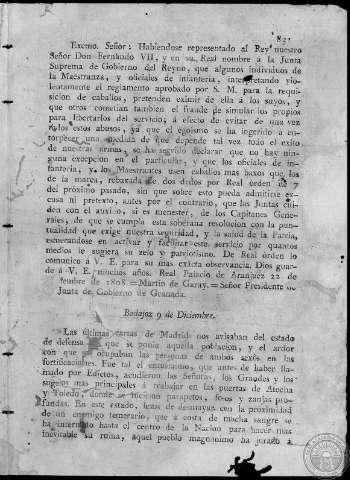 82.
Excmo. Señor: Habiendose representado al Rey nuestro
Señor Don Fernando VII, y en su Real nombre a la Junta
Suprema de Gobierno del Reyno, que algunos individuos de
la Maestranza, y oficiales de infanteria, interpretando vio-
lentamente el reglamento aprobado por S. M. para la requi-
sicion de caballos, pretenden eximir de ella á los suyos, y
que otros cometian tambien el fraude de simular los propios
para libertarlos del servicio; á efecto de evitar de una vez
todos estos abusos, ya que el egoismo se ha ingerido a en-
torpecer una medida de que depende tal vez todo el exîto
de nuestras armas, se ha servido declarar que no hay nin-
guna excepcion en el particular, y que los oficiales de in-
fanteria, y los Maestrantes usen caballos mas baxos que los
de la marca, rebaxada de dos dedos por Real órden de 7
del próximo pasado, sin que sobre esto pueda admitirse ex-
cusa ni pretexto, antes por el contrario, que las Juntas cui-
den con el auxîlio, si es menester, de los Capitanes Gene-
rales, de que se cumpla esta soberana resolucion con la pun-
tualidad que exige nuestra seguridad, y la salud de la Patria,
esmerandose en activar y facilitar este servicio por quantos
medios le sugiera su zelo y patriotismo. De Real órden lo
comunico á V. E. para su mas exâcta observancia. Dios guar-
de á V. E. muchos años. Real Palacio de Aranjuez 22 de
1808. = Martin de Garay. = Señor Presidente
Junta de Gobierno de Granada.
Badajoz 9 de Diciembre.
Las últimas cartas de Madrid nos avisaban del estado
de defensa en que se ponia aquella poblacion, y el ardor
con que se ocupaban las personas de ambos sexôs en las
fortificaciones. Fue tal el entusiasmo, que antes de haber lla-
mado por Edictos, acudieron las Señoras, los Grandes y los
sugetos mas principales á trabajar en las puertas de Atocha
y Toledo, donde se hicieron parapetos, fosos y zanjas pro-
fundas. En este estado, lexos de desmayar con la proximidad
de un enemigo temerario, que á costa de mucha sangre se
ha internado hasta el centro de la Nacion para hacer mas
inevitable su ruina, aquel pueblo magnanimo ha jurado á